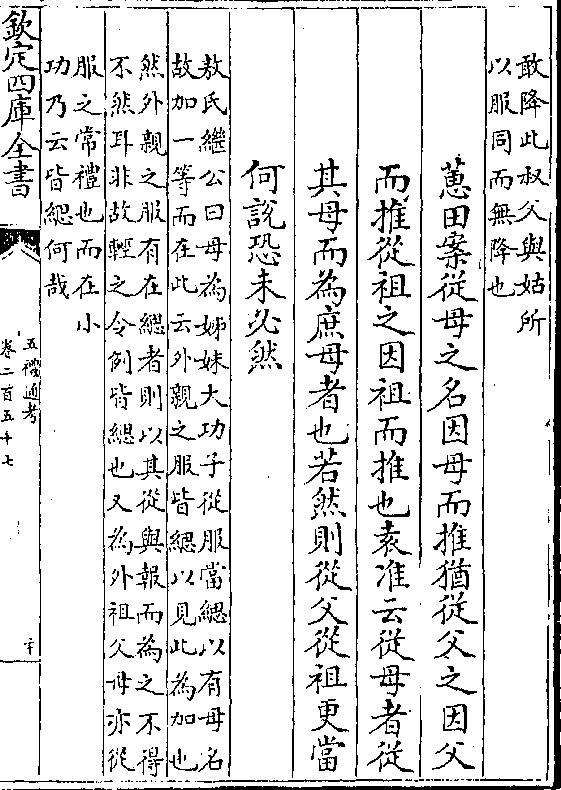 敢降此叔父與姑所
以服同而無降也
蕙田案從母之名因母而推猶從父之因父
而推從祖之因祖而推也袁准云從母者從
其母而為庶母者也若然則從父從祖更當
何說恐未必然
敖氏繼公曰母為姊妹大功子從服當緦以有母名
故加一等而在此云外親之服皆緦以見此為加也
然外親之服有在緦者則以其從與報而為之不得
不然耳非故輕之令例皆緦也又為外祖父母亦從
服之常禮也而在小
功乃云皆緦何哉
欽定四庫全書
五禮通考
卷二百五十七
二十